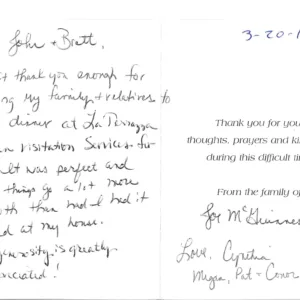 John + Brett,
t thank you enough for
ng my family + relatives to
dinner at La Terrazza
n visitation Services for
It was perfect and
things go a lot more
oth than had I had it
d at my house.
generosity is greatly
eciated!
3-20-1
Thank you for you
thoughts, prayers and ki
during this difficult ti
From the family of
Joe McGuinnes
Love, Cynthia
Megan, Pat + Conor